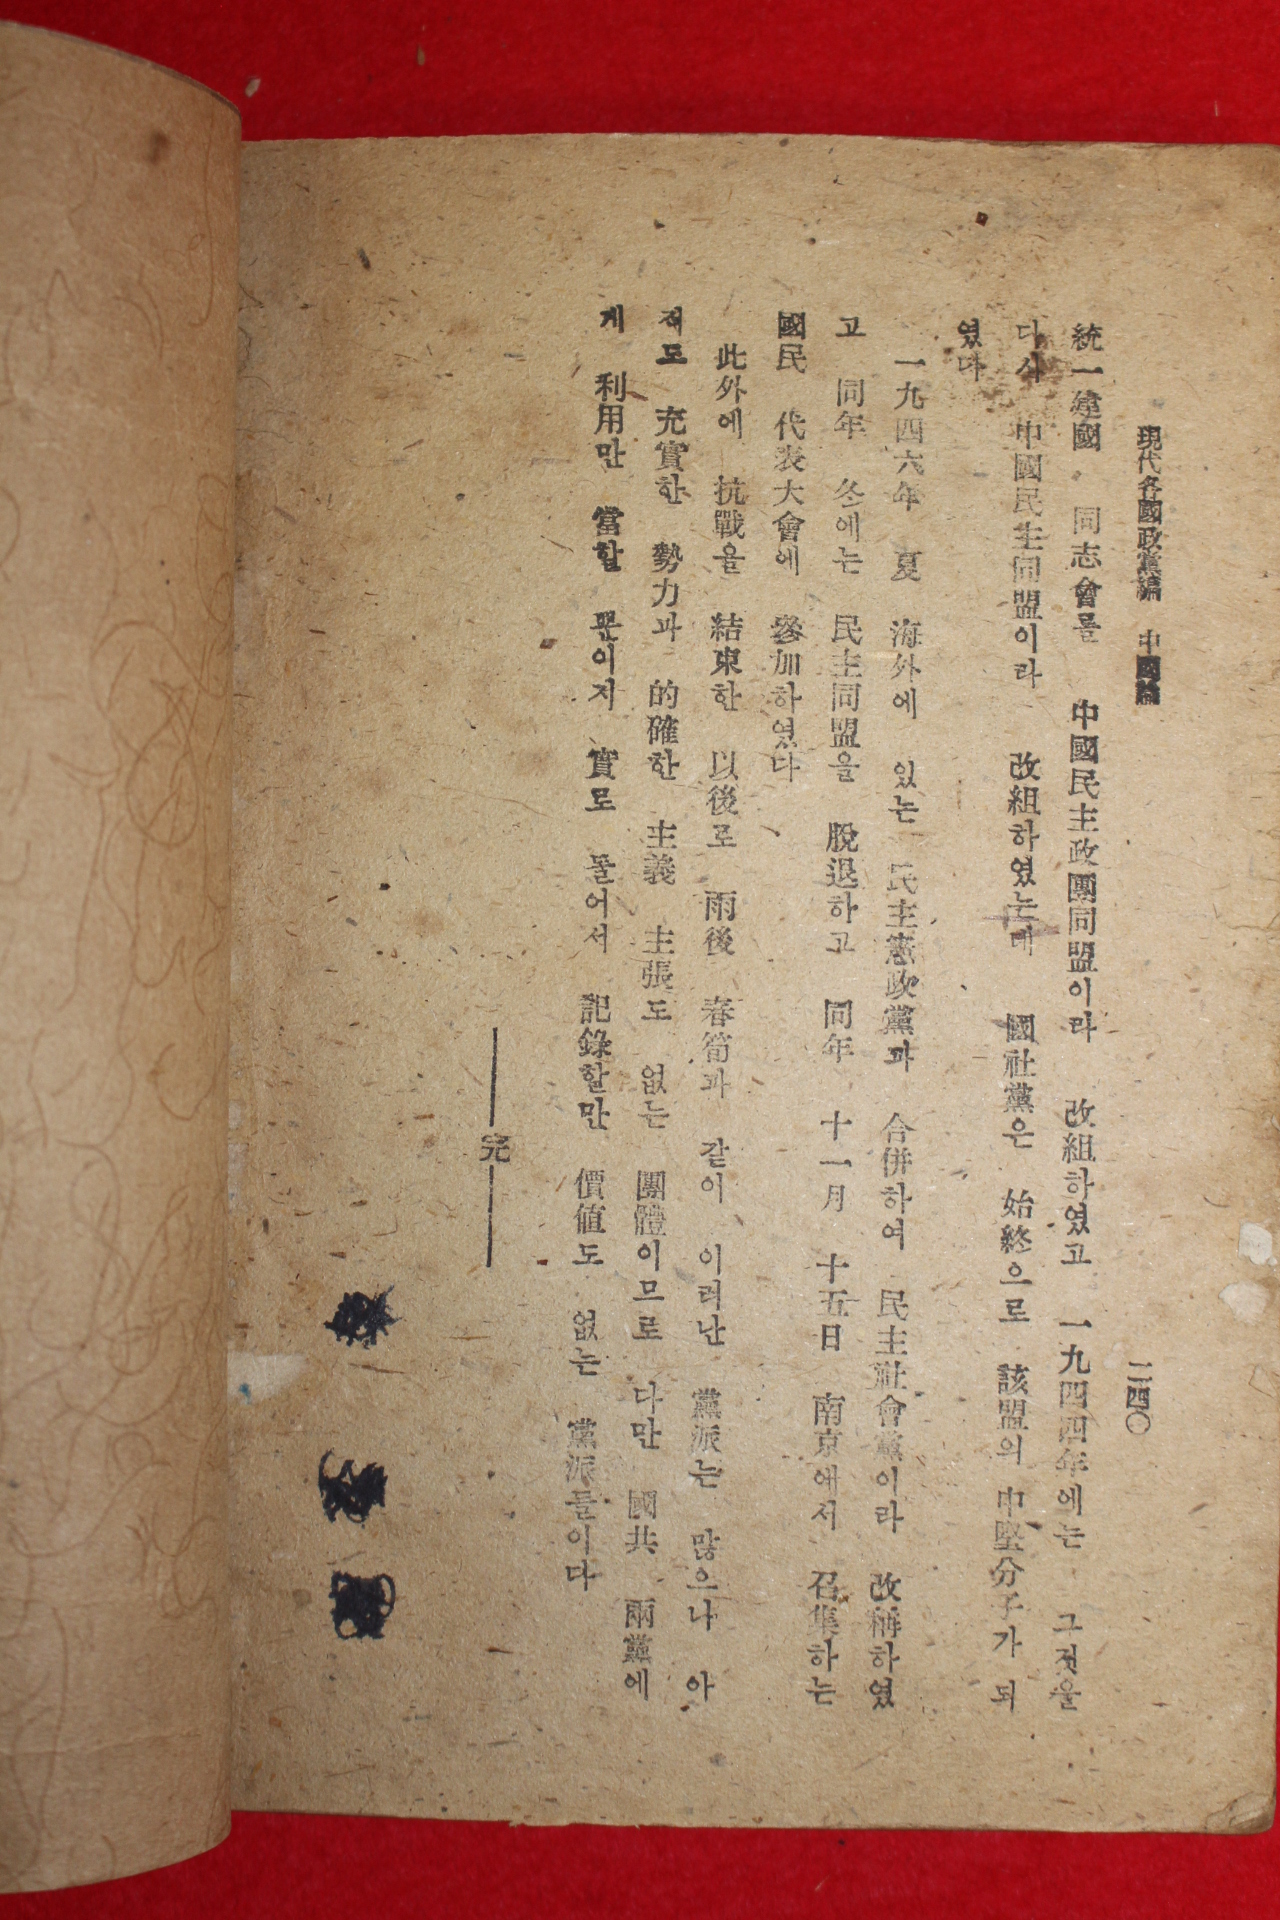 現代各國政黨編 中國論 二四〇
統一建國 同志會를 中國民主政團同盟이라 改組하였고 一九四四年에는 그것을
다시 中國民主同盟이라 改組하였는데 國社黨은 始終으로 該盟의 中堅分子가 되
였다
一九四六年 夏 海外에 있는 民主憲政黨과 合併하여 民主社會黨이라 改稱하였
고 同年 冬에는 民主同盟을 脫退하고 同年 十一月 十五日 南京에서 召集하는
國民 代表大會에 參加하였다
此外에 抗戰을 結束한 以後로 雨後 春筍과 같이 이러난 黨派는 많으나 아
직도 充實한 勢力과 的確한 主義 主張도 없는 團體이므로 다만 國共 兩黨에
게 利用만 當할 뿐이지 實로 돌어서 記錄할만 價値도 없는 黨派들이다
完